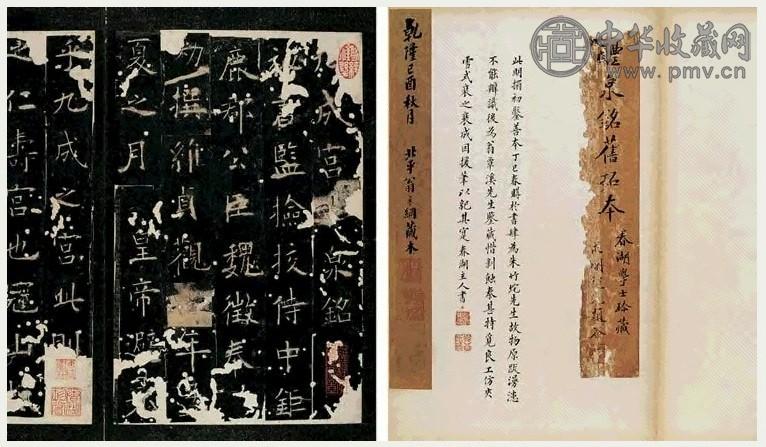 中华收藏网
www.pmv.cn
泉銘舊拓本
春湖學士珍藏
此明搨初鑿善本丁巳春購於書肆為朱竹垞先生故物原跋漫漶
不能辨識後為翁覃溪先生鑒藏惜剝蝕甚特覓良工仿
雪式裝之裝成因援筆以記其寔春湖主人書
乾隆己酉秋月 北平翁方綱藏本
成宮 泉銘
秘書監撿挍侍中鉅
鹿郡公臣魏徵奉
勑撰 維貞觀 年
夏之月 皇帝避
乎九成之宮此則
之仁壽宮也冠山